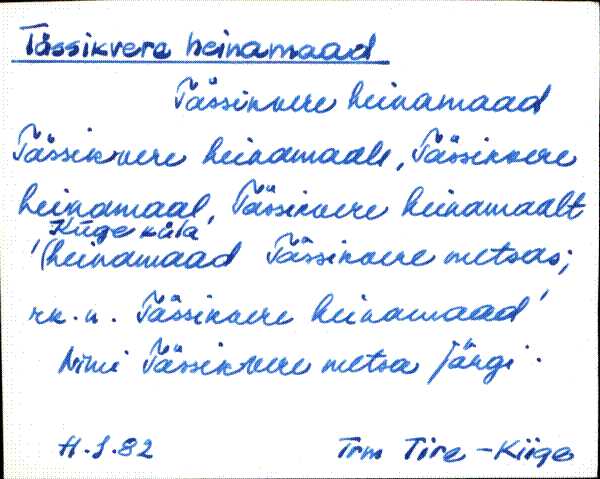 Tässikvere heinamaad
Tässikvere heinamaad
Tässikvere heinamaale, Tässikvere
heinamaal, Tässikvere heinamaalt
Kiigeküla
(heinamaad Tässikvere metsas;
rk. n. Tässikvere heinamaad
Nimi Tässikvere metsa järgi.
H.J.82 Trm Tire - Kiige